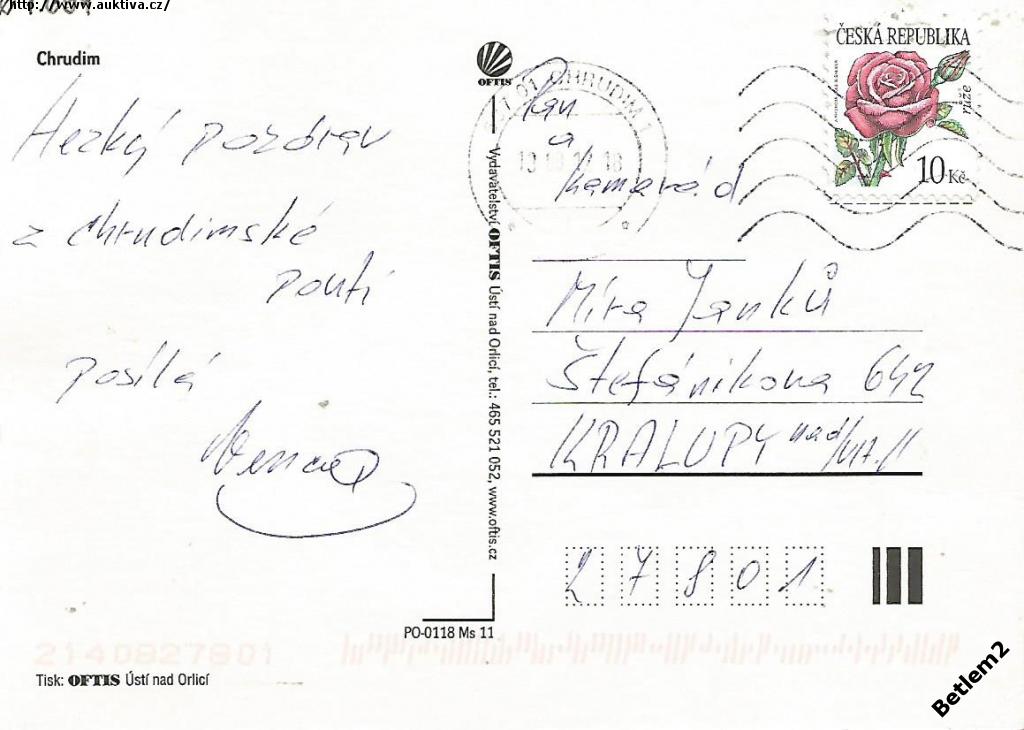 http://www.auktiva.cz/
Chrudim
Hezký pozdrav
z chrudimské
pouti
posílá
OFTIS
Vydavatelství OFTIS Ústí nad Orlicí, tel.: 465 521 052, www.oftis.cz
PO-0118 Ms 11
01 CHRUDIM 1
ČESKÁ REPUBLIKA
růže
10 Kč
Pan
a
kamarád
Míra Janků
Štefánikova 642
KRALUPY nad/Vlt.
27801
2140827801
Tisk: OFTIS Ústí nad Orlicí
Betlem2